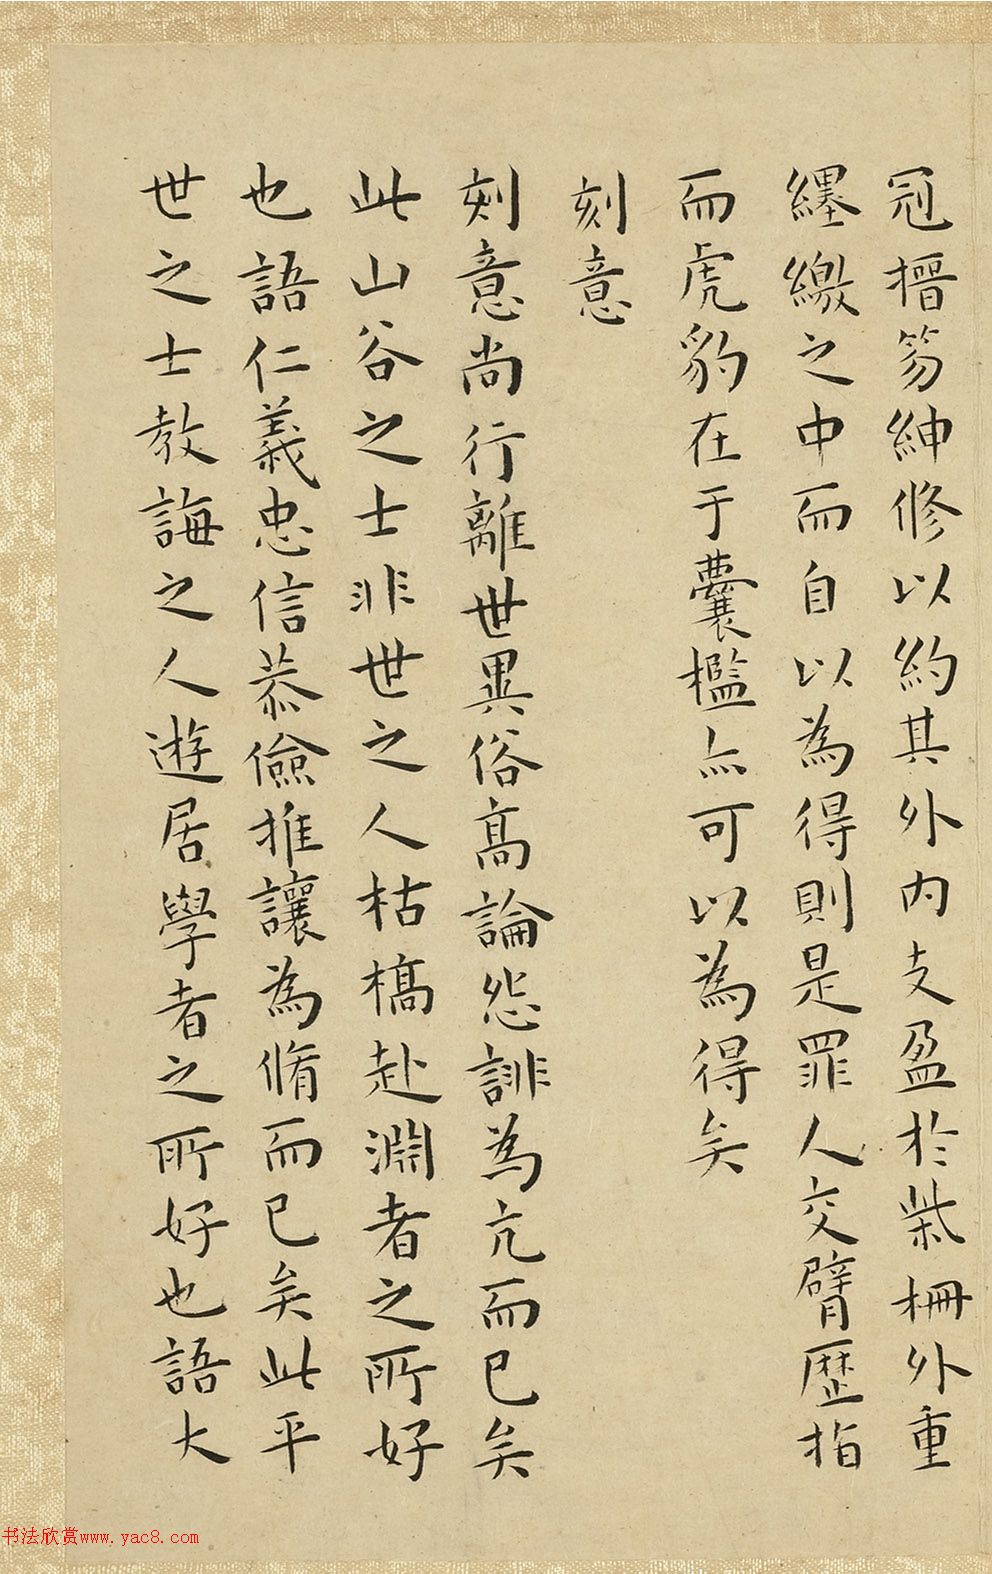 冠搢笏紳修以約其外内支盈於柴柵外重
纆繳之中而自以為得則是罪人交臂歷指
而虎豹在于囊檻亦可以為得矣
刻意
刻意尚行離世異俗高論怨誹為亢而已矣
此山谷之士非世之人枯槁赴淵者之所好
也語仁義忠信恭儉推讓為脩而已矣此平
世之士教誨之人遊居學者之所好也語大
书法欣赏www.yac8.com